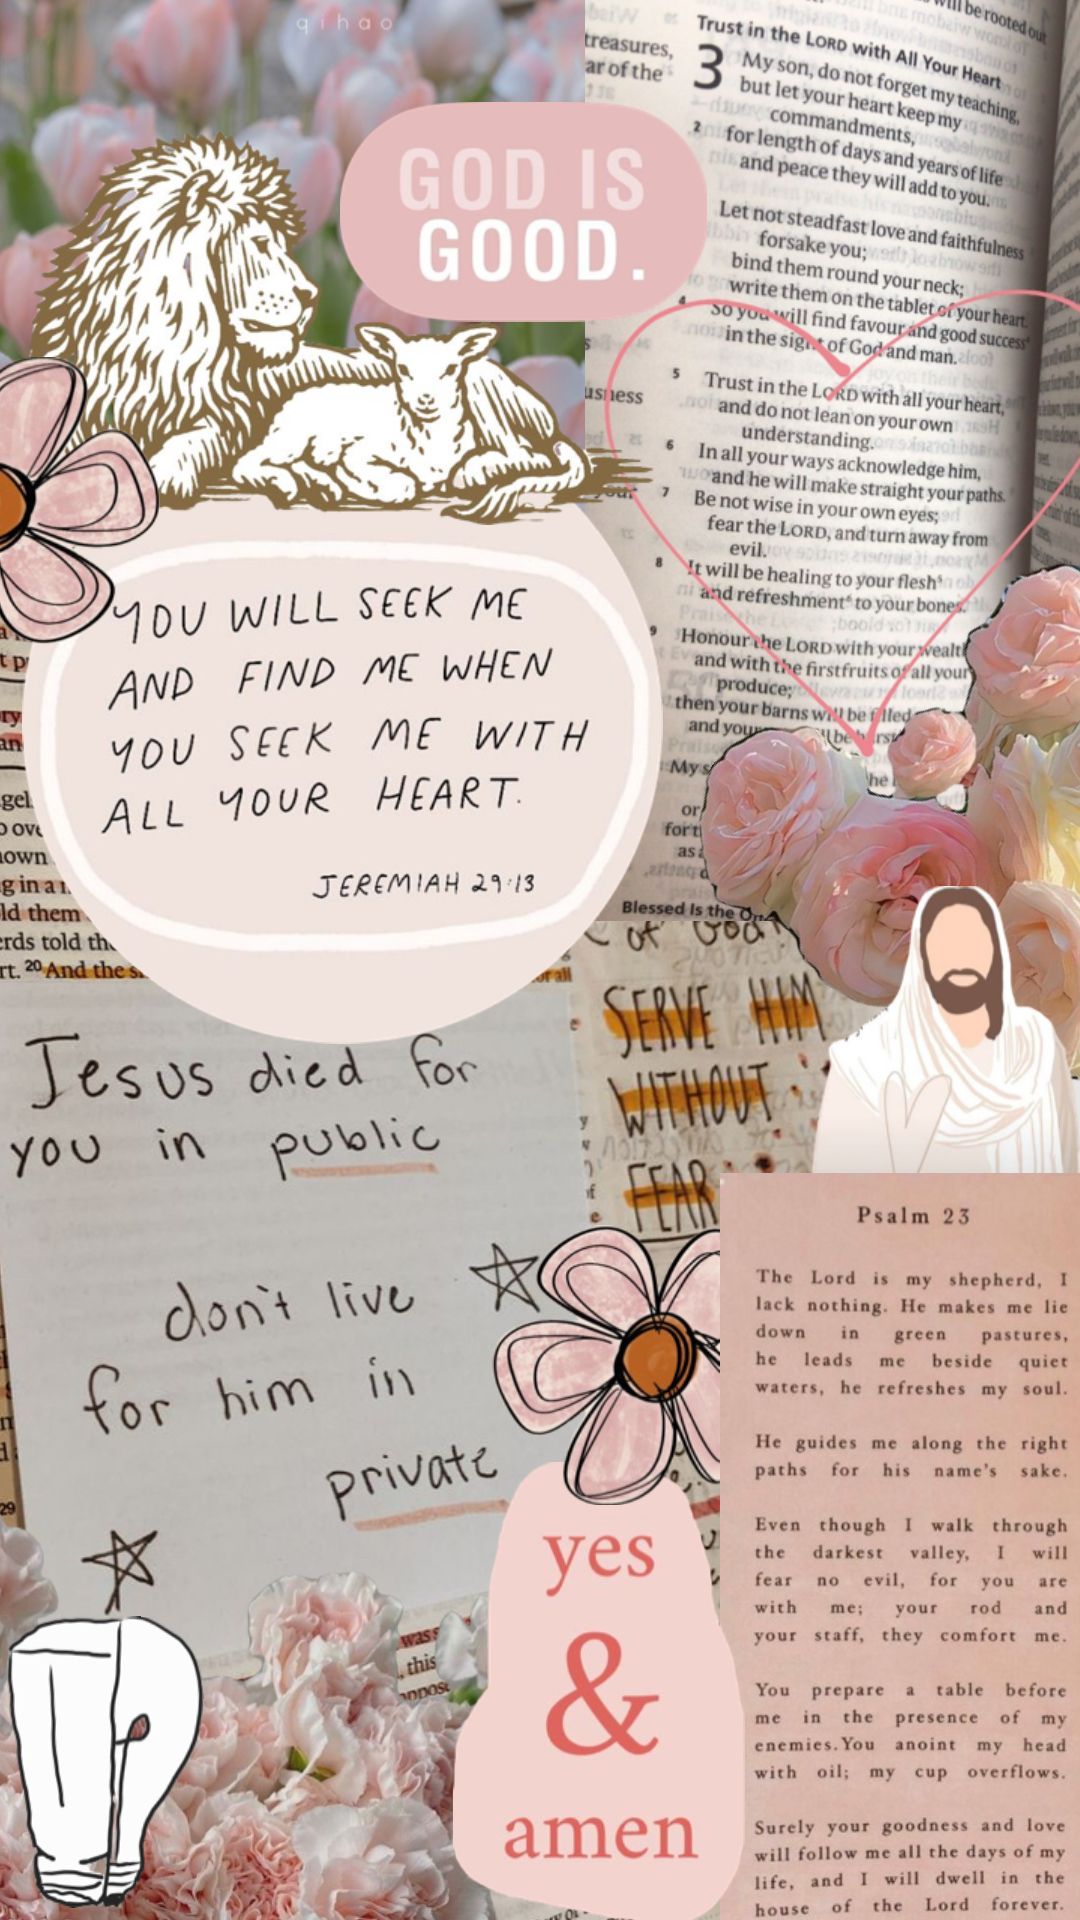 qihao
GOD IS
GOOD.
will be rooted out
treasures,
ar of the
Trust in the LORD with All Your Heart
3 My son, do not forget my teaching,
but let your heart keep my
commandments,
2 for length of days and years of life
and peace they will add to you.
Let not steadfast love and faithfulness
forsake you;
bind them round your neck;
write them on the tablet of your heart.
4 So you will find favour and good success
in the sight of God and man.
5 Trust in the LORD with all your heart,
and do not lean on your own
understanding.
6 In all your ways acknowledge him,
and he will make straight your paths.
7 Be not wise in your own eyes;
fear the LORD, and turn away from
evil.
8 It will be healing to your flesh
and refreshment to your bones.
9 Honour the LORD with your wealth
and with the firstfruits of all your
produce;
then your barns will be filled
and your
My s
or
fort
as
Blessed Is the
YOU WILL SEEK ME
AND FIND ME WHEN
YOU SEEK ME WITH
ALL YOUR HEART.
JEREMIAH 29:13
gel
own
g in a
ld them
erds told the
rt. 20 And the s
or all
of God
SERVE HIM
WITHOUT
FEAR
Jesus died for
you in public
don't live
for him in
private
29
was s
, this
yes
&
amen
Psalm 23
The Lord is my shepherd, I
lack nothing. He makes me lie
down in green pastures,
he leads me beside quiet
waters, he refreshes my soul.
He guides me along the right
paths for his name's sake.
Even though I walk through
the darkest valley, I will
fear no evil, for you are
with me; your rod and
your staff, they comfort me.
You prepare a table before
me in the presence of my
enemies.You anoint my head
with oil; my cup overflows.
Surely your goodness and love
will follow me all the days of my
life, and I will dwell in the
house of the Lord forever.